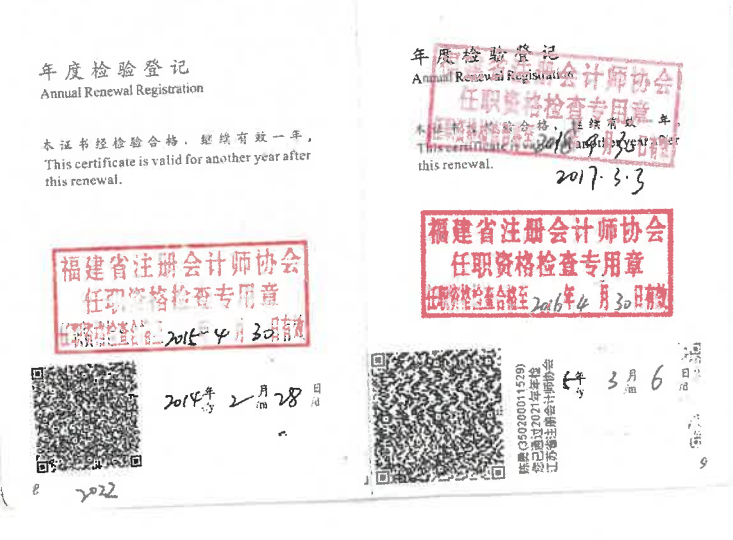 年度检验登记
Annual Renewal Registration
本证书经检验合格，继续有效一年。
This certificate is valid for another year after
this renewal.
福建省注册会计师协会
任职资格检查专用章
任职资格检查合格至 2015年4月30日有效
2014年 2月 28日
/y /m /d
8
2022
年度检验登记
Annual Renewal Registration
福建省注册会计师协会
任职资格检查专用章
本证书经检验合格，继续有效一年。
This certificate is valid for another year after
this renewal.
2017.3.3
福建省注册会计师协会
任职资格检查专用章
任职资格检查合格至2016年4月30日有效
陈勇(350200011529)
您已通过2021年年检
江苏省注册会计师协会
年 3月 6日
/y /m /d
9